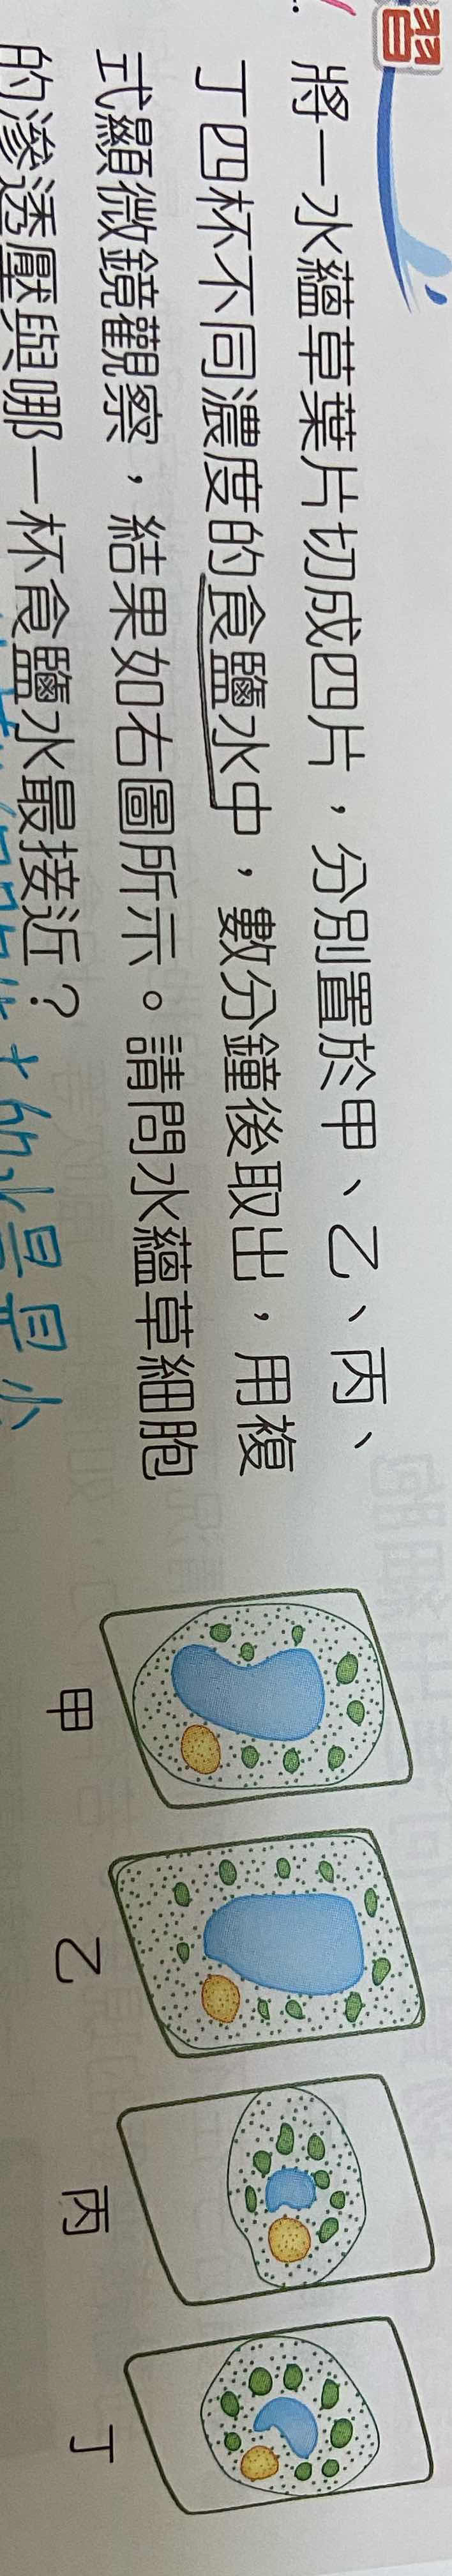 習
將一水蘊草葉片切成四片，分別置於甲、乙、丙、
丁四杯不同濃度的食鹽水中，數分鐘後取出，用複
式顯微鏡觀察，結果如右圖所示。請問水蘊草細胞
的滲透壓與哪一杯食鹽水最接近？
甲
乙
丙
丁
的水量最少